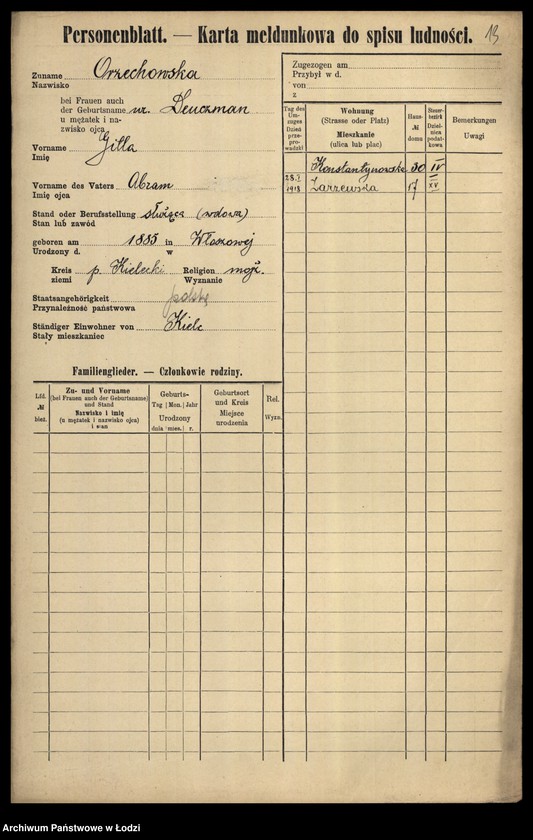 Personenblatt. — Karta meldunkowa do spisu ludności. 13
Zuname Orzechowska
Nazwisko
bei Frauen auch
der Geburtsname ur.
u mężatek i na-
zwisko ojca
Vorname Gitla
Imię
Vorname des Vaters Abram
Imię ojca
Stand oder Berufsstellung służąca (wdowa)
Stan lub zawód
geboren am 1885 in
Urodzony d. w
Kreis p. Kielecki Religion mojż.
ziemi Wyznanie
Staatsangehörigkeit polską
Przynależność państwowa
Ständiger Einwohner von Kielc
Stały mieszkaniec
Familienglieder. — Członkowie rodziny.
Lfd. № bież.
Zu- und Vorname
(bei Frauen auch der Geburtsname)
und Stand
Nazwisko i imię
(u mężatek i nazwisko ojca)
i stan
Geburts-
Tag Mon. Jahr
Urodzony
dnia mies. r.
Geburtsort
und Kreis
Miejsce
urodzenia
Rel.
Wyzn.
Zugezogen am
Przybył w d.
von
z
Tag des
Um-
zuges
Dzień
prze-
prowadzki
Wohnung
(Strasse oder Platz)
Mieszkanie
(ulica lub plac)
Haus-
№
domu
Steuer-
bezirk
Dziel-
nica
podat-
kowa
Bemerkungen
Uwagi
Konstantynowska 30 IV
1918 Zarzewska 17 XV
Archiwum Państwowe w Łodzi